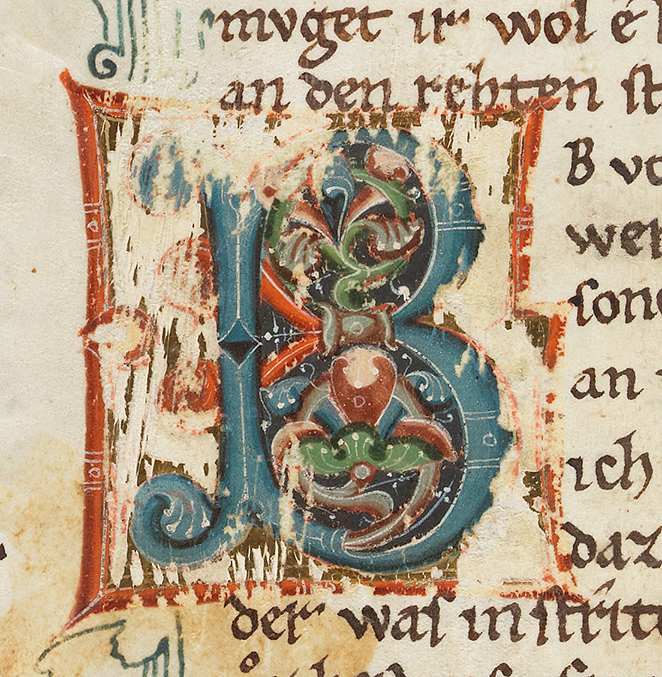 mvget ir wol é
an den rehten st
B vo
wer
sone
an
ich
daz
der was in strite